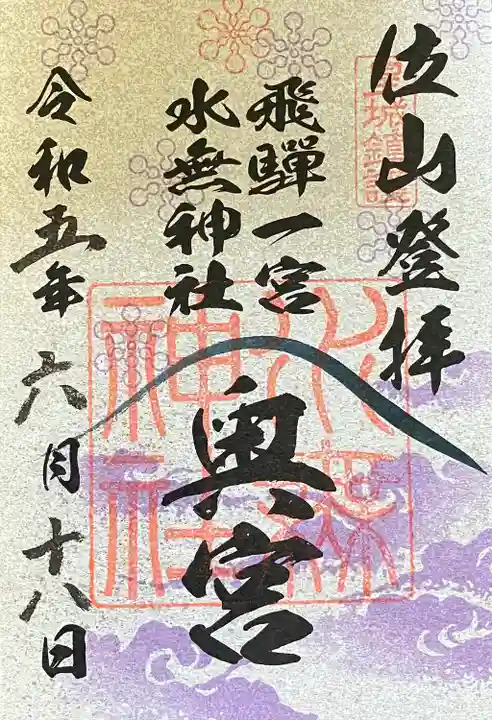 位山登拝
皇城鎮護
飛騨一宮
水無神社
奥宮
水無
神社
令和五年六月十八日